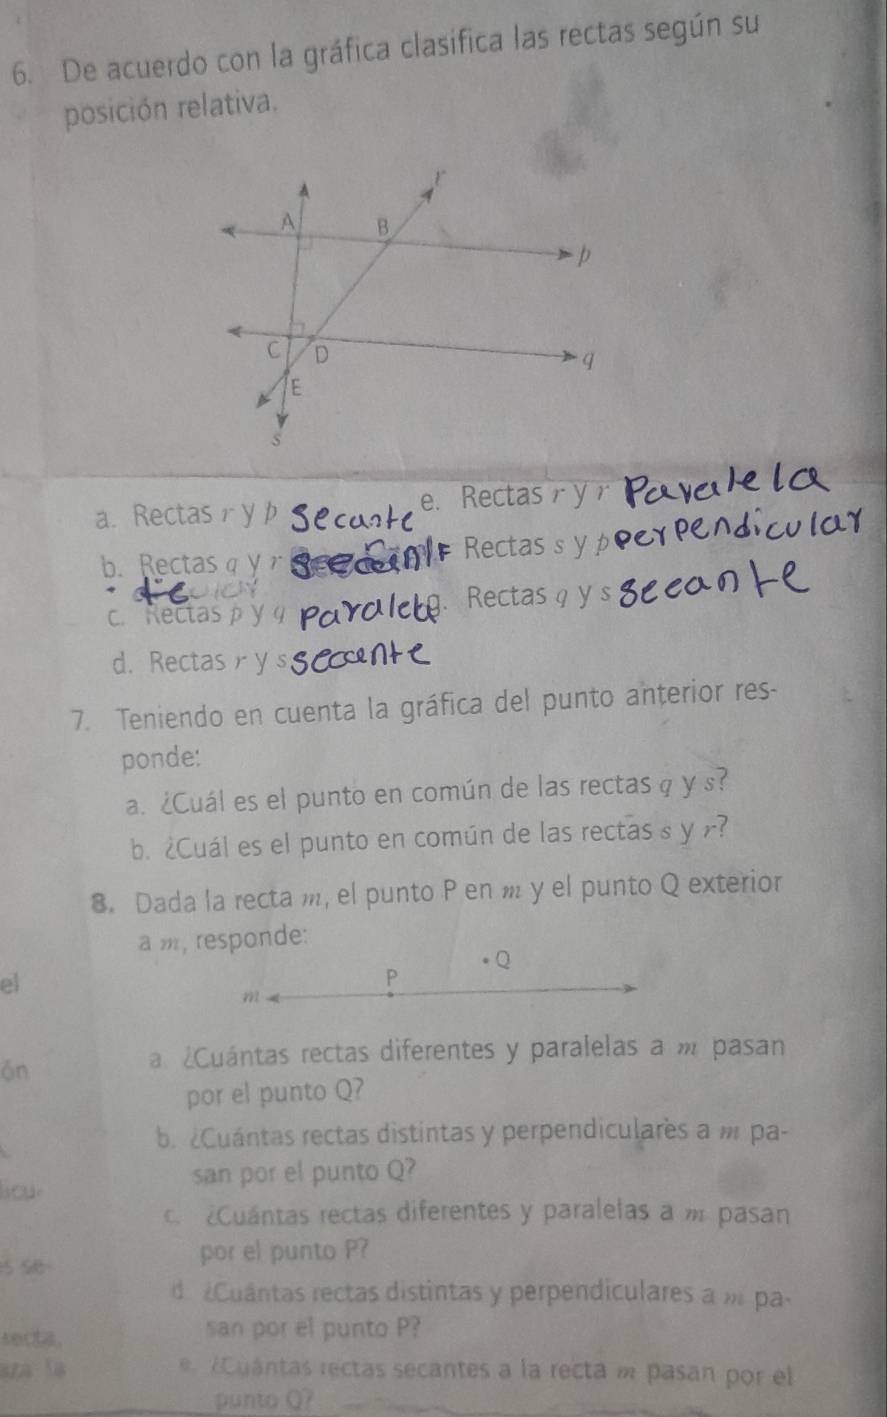 6. De acuerdo con la gráfica clasifica las rectas según su
posición relativa.
r
A B
p
C D
q
E
s
a. Rectas r y p Secante e. Rectas r y r Paralela
b. Rectas q y r f. Rectas s y p perpendicular
c. Rectas p y q paralela g. Rectas q y s secante
d. Rectas r y s secante
7. Teniendo en cuenta la gráfica del punto anterior res-
ponde:
a. ¿Cuál es el punto en común de las rectas q y s?
b. ¿Cuál es el punto en común de las rectas s y r?
8. Dada la recta m, el punto P en m y el punto Q exterior
a m, responde:
el
P Q
m
a. ¿Cuántas rectas diferentes y paralelas a m pasan
ón
por el punto Q?
b. ¿Cuántas rectas distintas y perpendiculares a m pa-
san por el punto Q?
licu-
c. ¿Cuántas rectas diferentes y paralelas a m pasan
por el punto P?
s se-
d. ¿Cuántas rectas distintas y perpendiculares a m pa-
san por el punto P?
e. ¿Cuántas rectas secantes a la recta m pasan por el
punto Q?